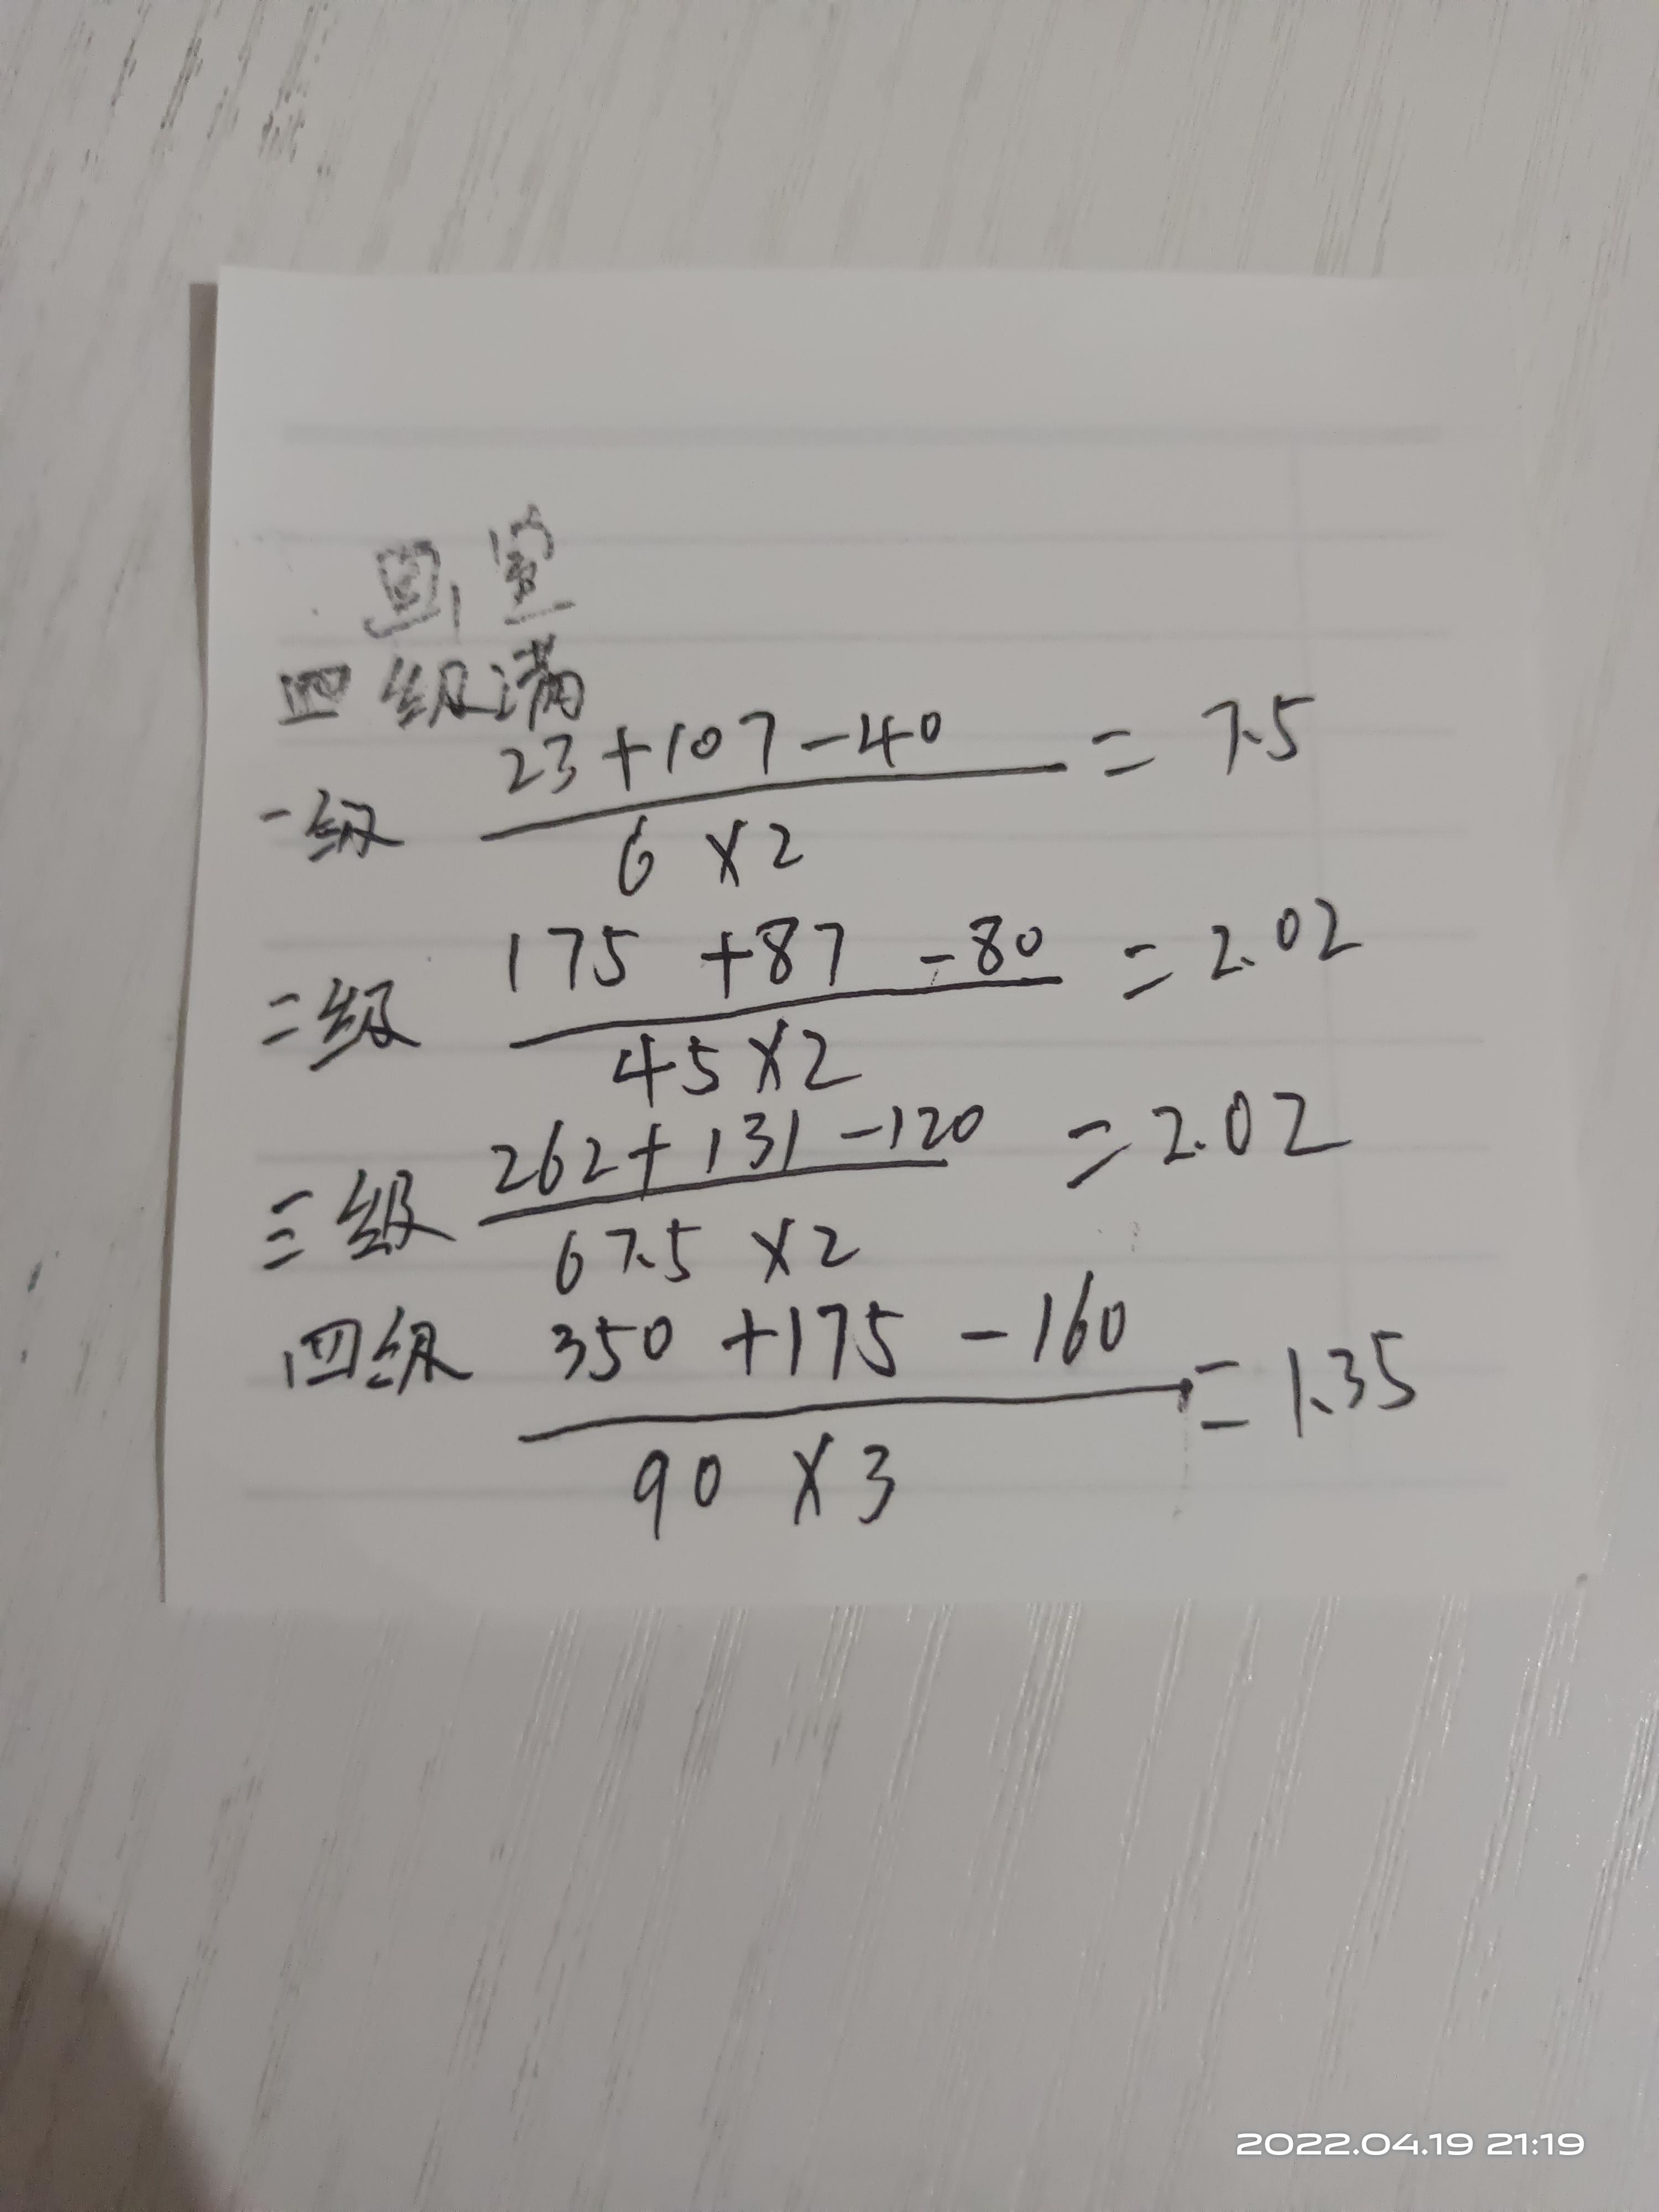 四级满
一级 23+107-40 = 7.5
6×2
二级 175+87-80 = 2.02
45×2
三级 262+131-120 = 2.02
67.5×2
四级 350+175-160 = 1.35
90×3
2022.04.19 21:19